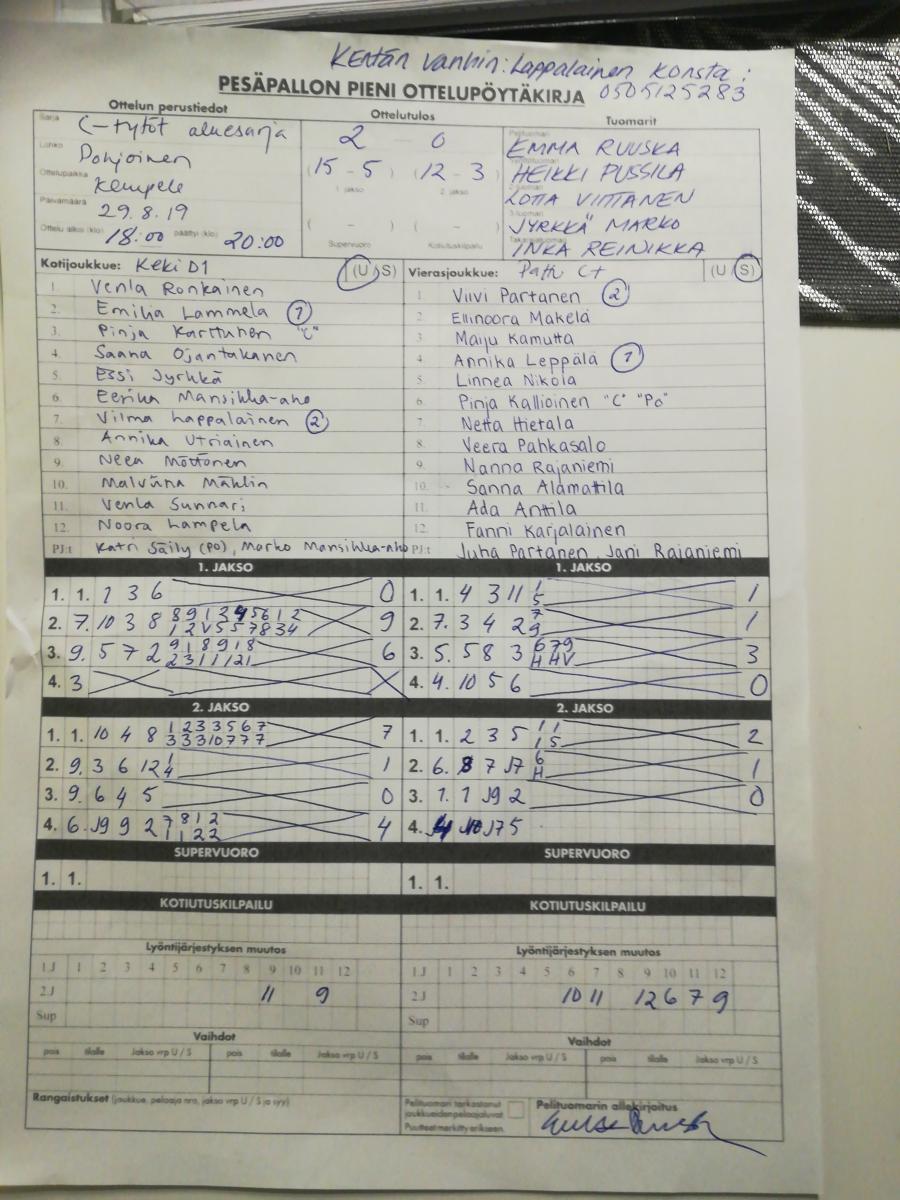 Kentän vanhin: Lappalainen Konsta:
0505125283
PESÄPALLON PIENI OTTELUPÖYTÄKIRJA
Ottelun perustiedot
Sarja C-tytöt aluesarja
Lohko Pohjoinen
Ottelupaikka Kempele
Päivämäärä 29.8.19
Ottelu alkoi (klo) 18:00 päättyi (klo) 20:00
Ottelutulos
2 - 0
(15 - 5) (12 - 3)
1. jakso 2. jakso
( - ) ( - )
Supervuoro Kotiutuskilpailu
Tuomarit
EMMA RUUSKA
HEIKKI PUSSILA
LOTTA VIITTANEN
JYRKKÄ MARKO
INKA REINIKKA
Kotijoukkue: Keki D1 (U S)
1. Venla Ronkainen
2. Emilia Lammela 1
3. Pinja Karttunen "C"
4. Saana Ojantakanen
5. Essi Jyrkkä
6. Eerika Mansikka-aho
7. Vilma Lappalainen 2
8. Annika Utriainen
9. Neea Möttönen
10. Malviina Mählin
11. Venla Sunnari
12. Noora Lampela
PJ:t Katri Säily (PO), Marko Mansikka-aho
Vierasjoukkue: Pattu C+ (U S)
1. Viivi Partanen 2
2. Ellinoora Mäkelä
3. Maiju Kamutta
4. Annika Leppälä 1
5. Linnea Nikola
6. Pinja Kallioinen "C" "Po"
7. Netta Hietala
8. Veera Pahkasalo
9. Nanna Rajaniemi
10. Sanna Alamattila
11. Ada Anttila
12. Fanni Karjalainen
PJ:t Juha Partanen, Jani Rajaniemi
1. JAKSO
1. 1. 1 3 6 0
2. 7. 10 3 8 8 9 1 2 4 5 6 1 2 9
1 2 V 5 5 7 8 3 4
3. 9. 5 7 2 9 1 8 9 1 8 6
2 3 1 1 1 2 1
4. 3
1. JAKSO
1. 1. 4 3 11 1 1
5
2. 7. 3 4 2 7 1
9
3. 5. 5 8 3 6 7 9 3
H H V
4. 4. 10 5 6 0
2. JAKSO
1. 1. 10 4 8 1 2 3 3 5 6 7 7
3 3 3 10 7 7 7
2. 9. 3 6 12 1 1
4
3. 9. 6 4 5 0
4. 6. J9 9 2 7 8 1 2 4
1 1 2 2
2. JAKSO
1. 1. 2 3 5 1 1 2
1 5
2. 6. 8 7 J7 6 1
H
3. 1. 1 J9 2 0
4. J10 J7 5
SUPERVUORO
1. 1.
SUPERVUORO
1. 1.
KOTIUTUSKILPAILU
KOTIUTUSKILPAILU
Lyöntijärjestyksen muutos
1.J 1 2 3 4 5 6 7 8 9 10 11 12
2.J 11 9
Sup
Lyöntijärjestyksen muutos
1.J 1 2 3 4 5 6 7 8 9 10 11 12
2.J 10 11 12 6 7 9
Sup
Vaihdot
pois tilalle Jakso vrp U / S pois tilalle Jakso vrp U / S
Vaihdot
pois tilalle Jakso vrp U / S pois tilalle Jakso vrp U / S
Rangaistukset (joukkue, pelaaja nro, jakso vrp U / S ja syy)
Pelituomari tarkastanut
joukkueiden pelaajaluvat
Puutteet merkitty erikseen.
Pelituomarin allekirjoitus